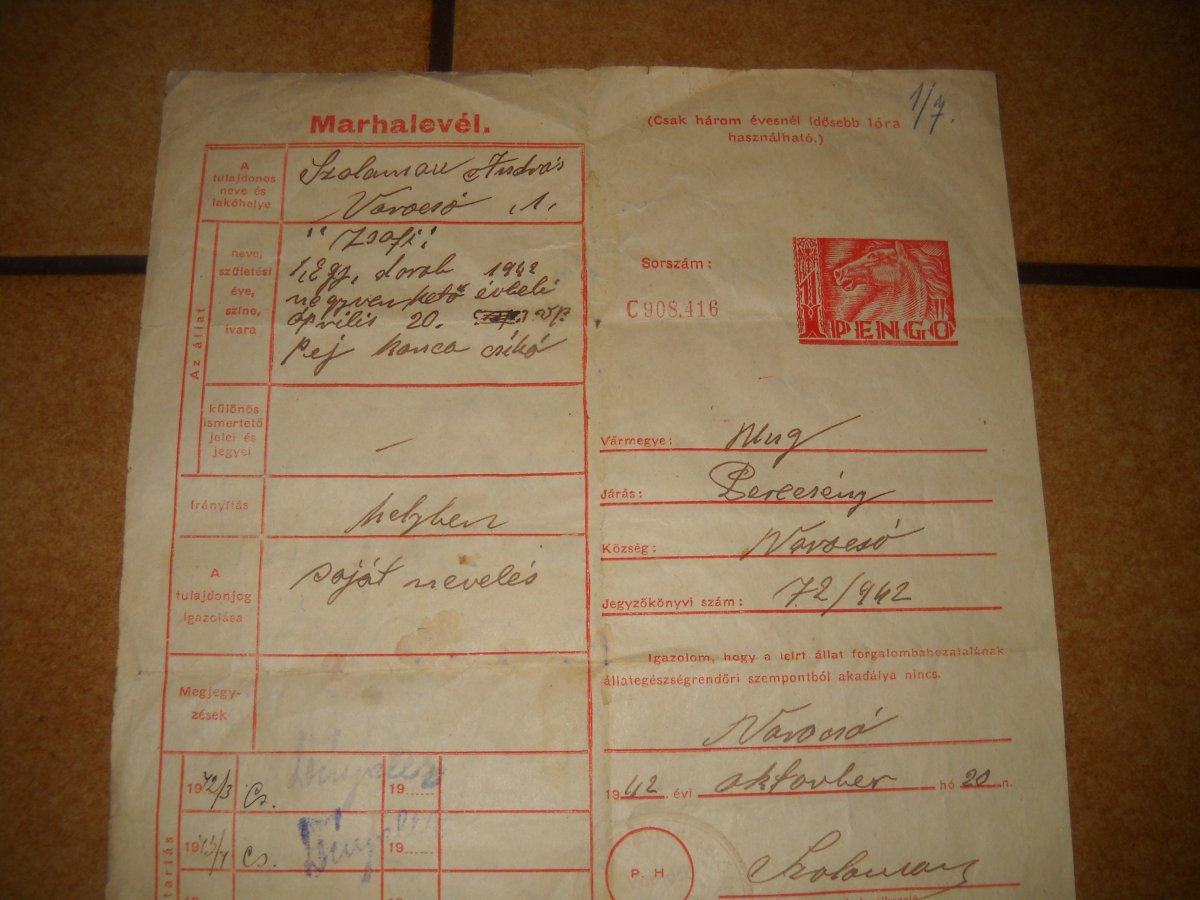 Marhalevél.
A
tulajdonos
neve és
lakóhelye
András
Az állat
neve,
születési
éve,
színe,
ivara
1, Egy, darab 1942
negyvenkető évbeli
április 20.
Pej kanca csikó
különös
ismertető
jelei és
jegyei
—
Irányítás
helyben
A
tulajdonjog
igazolása
saját nevelés
Megjegy-
zések
1942/3 Cs.
19......
19 cs.
19......
tartás
1/7.
(Csak három évesnél idősebb lóra
használható.)
Sorszám:
C 908.416
1 PENGŐ
Vármegye: Ung
Járás: Perecsény
Község:
Jegyzőkönyvi szám: 72/942
Igazolom, hogy a leirt állat forgalombahozatalának
állategészségrendőri szempontból akadálya nincs.
1942. évi oktober hó 20-n.
P. H